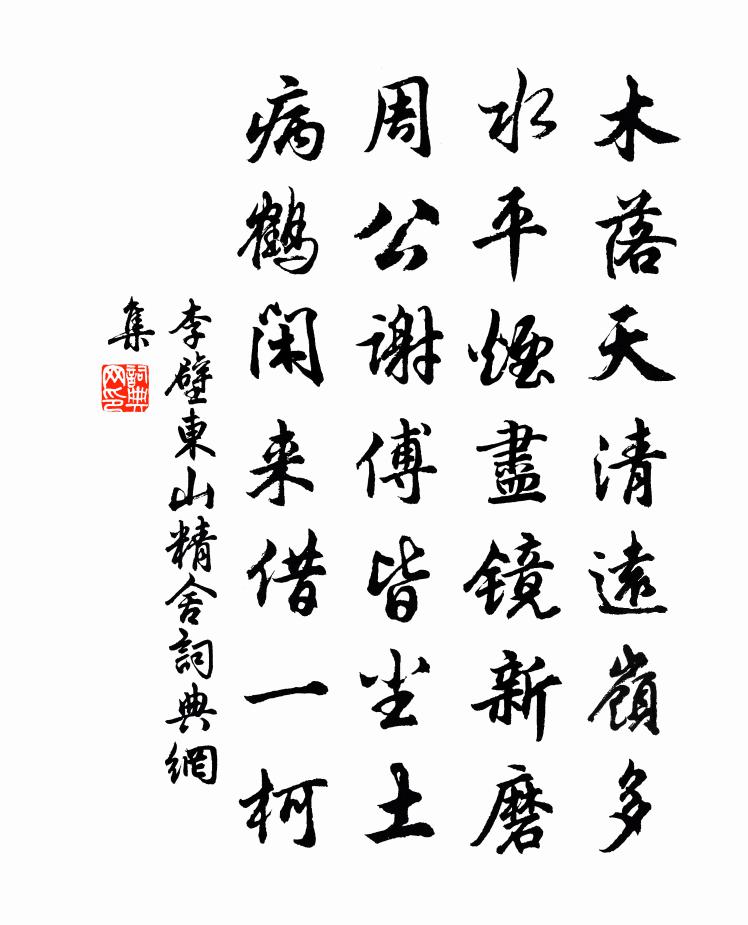 木落天清遠嶺多
水平煙盡鏡新磨
周公謝傅皆尘土
病鶴閑来借一柯
李壁東山精舍詞典網
集
詞典
网印